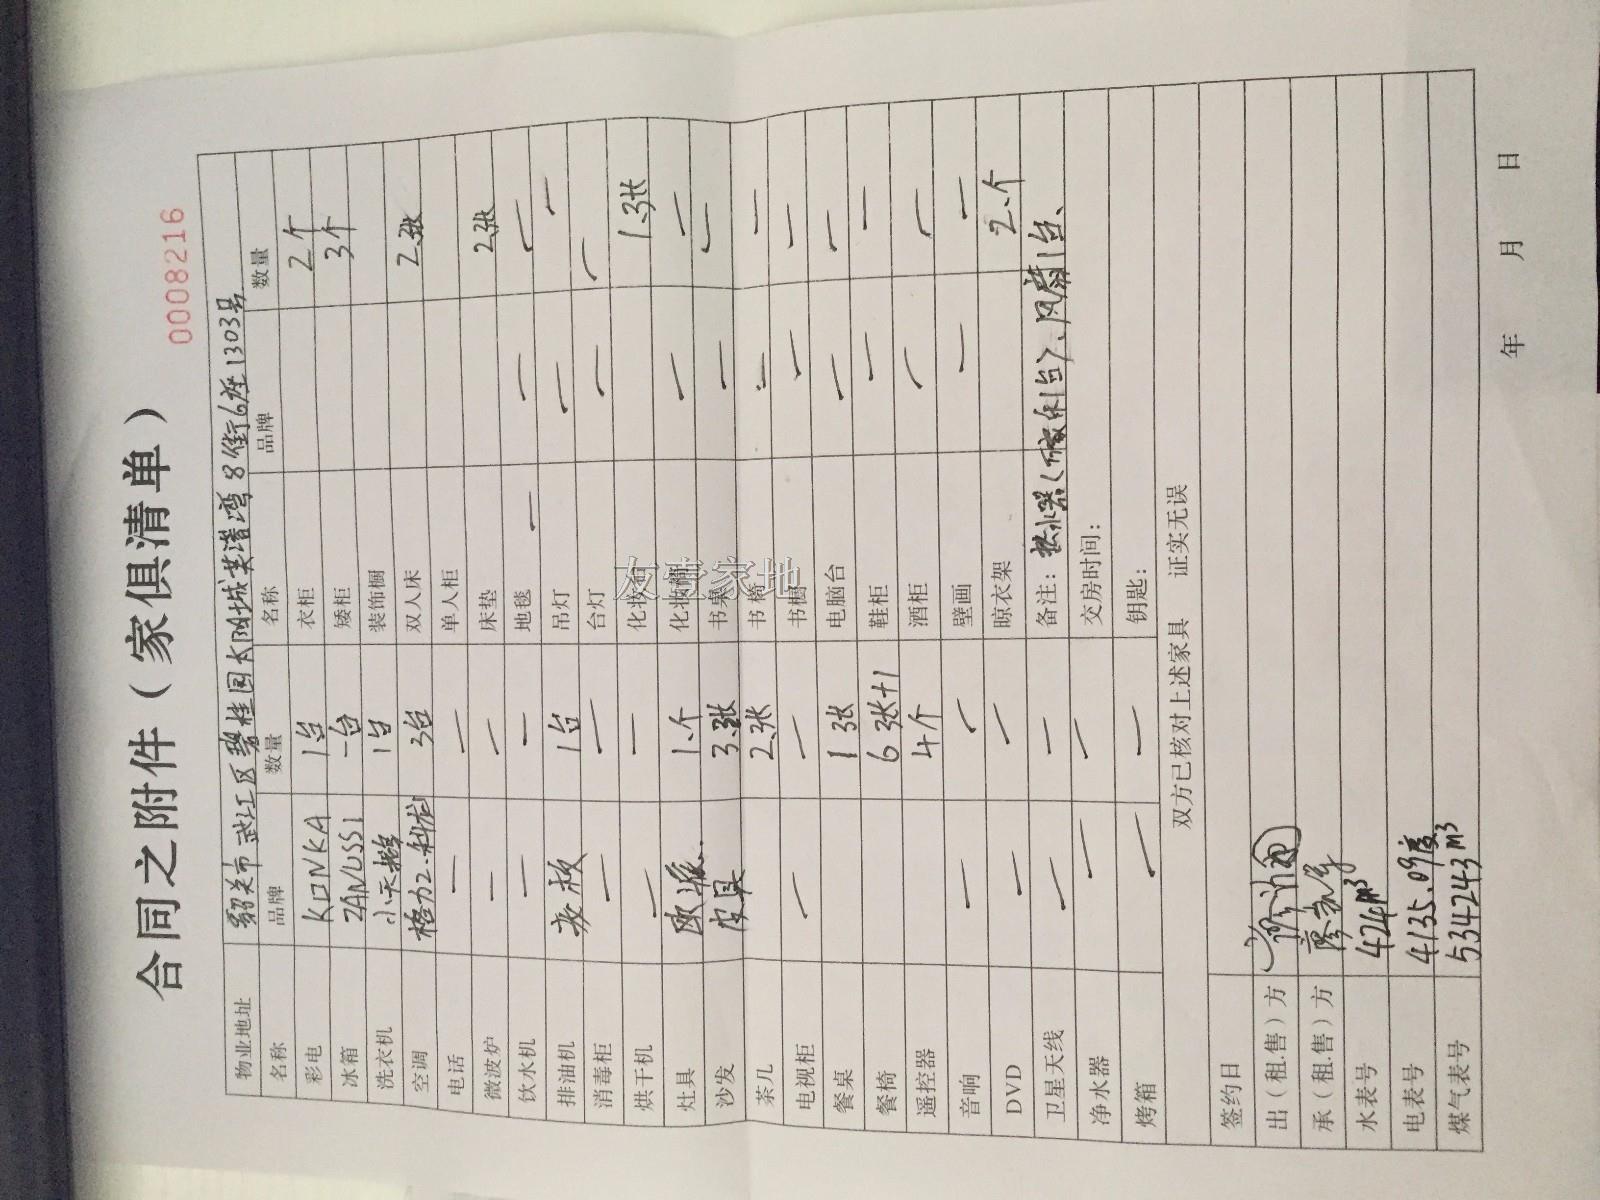 合同之附件（家俱清单）
0008216
物业地址 韶关市武江区碧桂园太阳城芙蓉湾8街6座1303号
名称 品牌 数量 名称 品牌 数量
彩电 KONKA 1台 衣柜 2个
冰箱 ZANUSSI 一台 矮柜 3个
洗衣机 小天鹅 1台 装饰橱
空调 格力2.科龙1 3台 双人床 2张
电话 — — 单人柜
微波炉 — — 床垫 2张
饮水机 — — 地毯 — — —
排油机 1台 吊灯 — —
消毒柜 — — 台灯 — —
烘干机 — — 化妆台 1张
灶具 欧派 1个 — —
沙发 皮具 3张 书桌 — —
茶几 2张 书椅 — —
电视柜 — — 书橱 — —
餐桌 1张 电脑台 — —
餐椅 6张+1 鞋柜 — —
遥控器 4个 酒柜 — —
音响 — — 壁画 — —
DVD — — 晾衣架 2个
卫星天线 — — 备注：热水器（万家乐1台）、风扇1台、
净水器 — — 交房时间：
烤箱 — — 钥匙：
双方已核对上述家具 证实无误
签约日
出（租.售）方
承（租.售）方
水表号 424m³
电表号 4135.09度
煤气表号 5342243m³
年 月 日